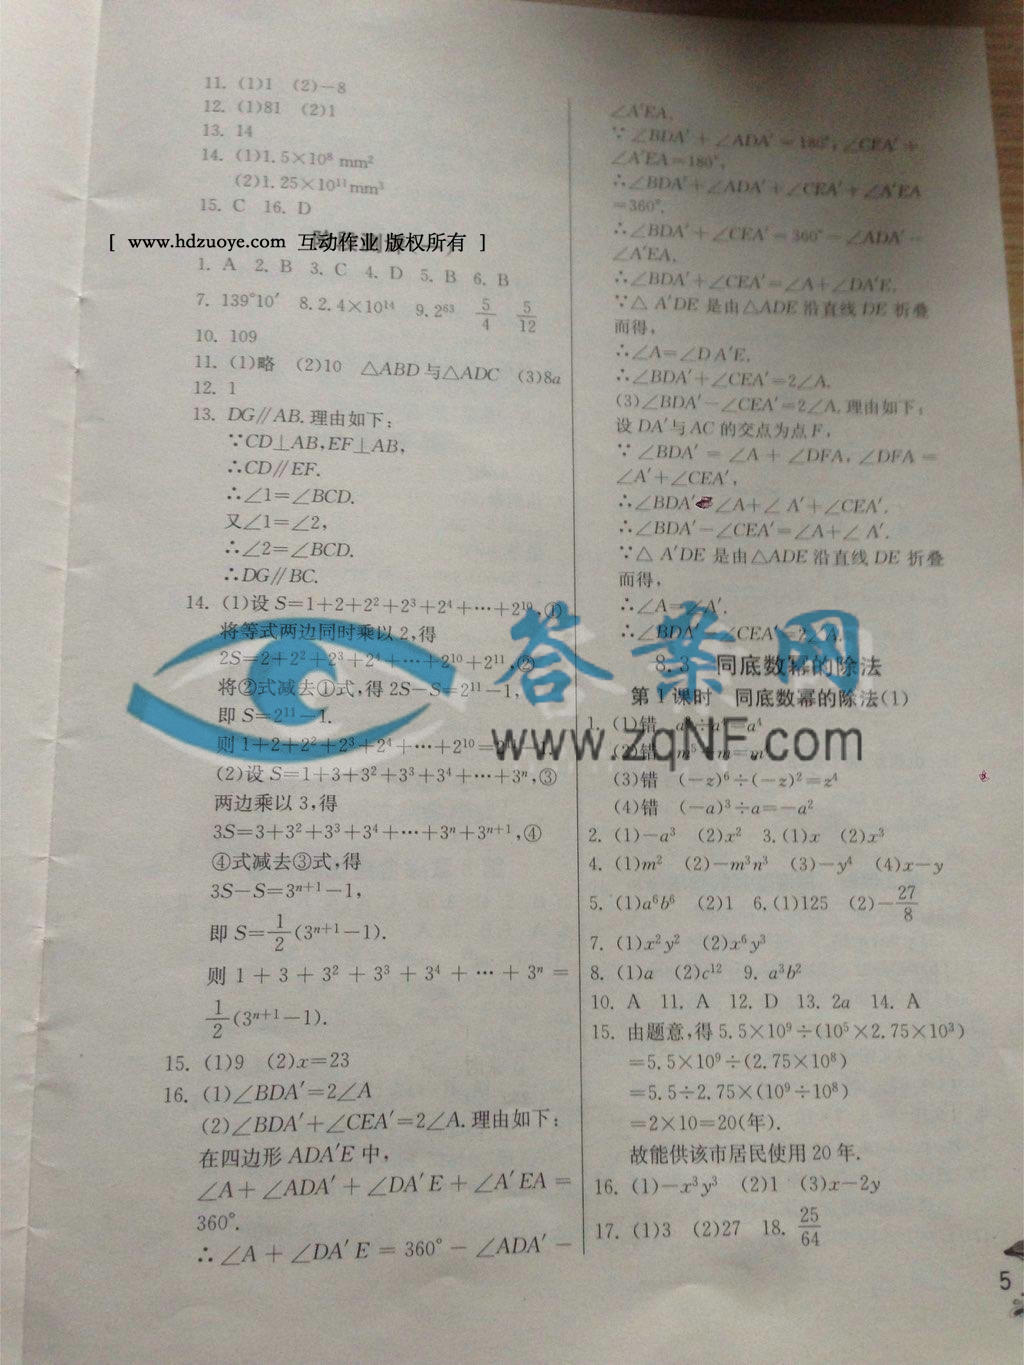 11. (1)1 (2)−8
12. (1)81 (2)1
13. 14
14. (1)1.5×10⁸ mm²
(2)1.25×10¹¹mm³
15. C 16. D
[ www.hdzuoye.com 互动作业 版权所有 ]
1. A 2. B 3. C 4. D 5. B 6. B
7. 139°10′ 8. 2.4×10¹⁴ 9. 2⁶³ 5/4 5/12
10. 109
11. (1)略 (2)10 △ABD与△ADC (3)8a
12. 1
13. DG∥AB.理由如下:
∵CD⊥AB,EF⊥AB,
∴CD∥EF.
∴∠1=∠BCD.
又∠1=∠2,
∴∠2=∠BCD.
∴DG∥BC.
14. (1)设 S=1+2+2²+2³+2⁴+⋯+2¹⁰,①
将等式两边同时乘以2,得
2S=2+2²+2³+2⁴+⋯+2¹⁰+2¹¹,②
将②式减去①式,得 2S−S=2¹¹−1,
即 S=2¹¹−1.
则 1+2+2²+2³+2⁴+⋯+2¹⁰=2
(2)设 S=1+3+3²+3³+3⁴+⋯+3ⁿ,③
两边乘以3,得
3S=3+3²+3³+3⁴+⋯+3ⁿ+3ⁿ⁺¹,④
④式减去③式,得
3S−S=3ⁿ⁺¹−1,
即 S=1/2(3ⁿ⁺¹−1).
则 1+3+3²+3³+3⁴+⋯+3ⁿ=
1/2(3ⁿ⁺¹−1).
15. (1)9 (2)x=23
16. (1)∠BDA′=2∠A
(2)∠BDA′+∠CEA′=2∠A.理由如下:
在四边形 ADA′E 中,
∠A+∠ADA′+∠DA′E+∠A′EA=
360°.
∴∠A+∠DA′E=360°−∠ADA′−
∠A′EA.
∵∠BDA′+∠ADA′=180°,∠CEA′+
∠A′EA=180°,
∴∠BDA′+∠ADA′+∠CEA′+∠A′EA
=360°.
∴∠BDA′+∠CEA′=360°−∠ADA′−
∠A′EA.
∴∠BDA′+∠CEA′=∠A+∠DA′E.
∵△A′DE 是由△ADE 沿直线 DE 折叠
而得,
∴∠A=∠DA′E.
∴∠BDA′+∠CEA′=2∠A.
(3)∠BDA′−∠CEA′=2∠A.理由如下:
设 DA′与 AC 的交点为点 F,
∵∠BDA′=∠A+∠DFA,∠DFA=
∠A′+∠CEA′,
∴∠BDA′ ∠A+∠A′+∠CEA′.
∴∠BDA′−∠CEA′=∠A+∠A′.
∵△A′DE 是由△ADE 沿直线 DE 折叠
而得,
∴∠A=∠A′.
∴∠BDA′ ∠CEA′=2∠A.
答案网
8.3 同底数幂的除法
第1课时 同底数幂的除法(1)
www.zqNF.com
1. (1)错 =a⁴
(2)错
(3)错 (−z)⁶÷(−z)²=z⁴
(4)错 (−a)³÷a=−a²
2. (1)−a³ (2)x² 3. (1)x (2)x³
4. (1)m² (2)−m³n³ (3)−y⁴ (4)x−y
5. (1)a⁶b⁶ (2)1 6. (1)125 (2)−27/8
7. (1)x²y² (2)x⁶y³
8. (1)a (2)c¹² 9. a³b²
10. A 11. A 12. D 13. 2a 14. A
15. 由题意,得 5.5×10⁹÷(10⁵×2.75×10³)
=5.5×10⁹÷(2.75×10⁸)
=5.5÷2.75×(10⁹÷10⁸)
=2×10=20(年).
故能供该市居民使用20年.
16. (1)−x³y³ (2)1 (3)x−2y
17. (1)3 (2)27 18. 25/64
5